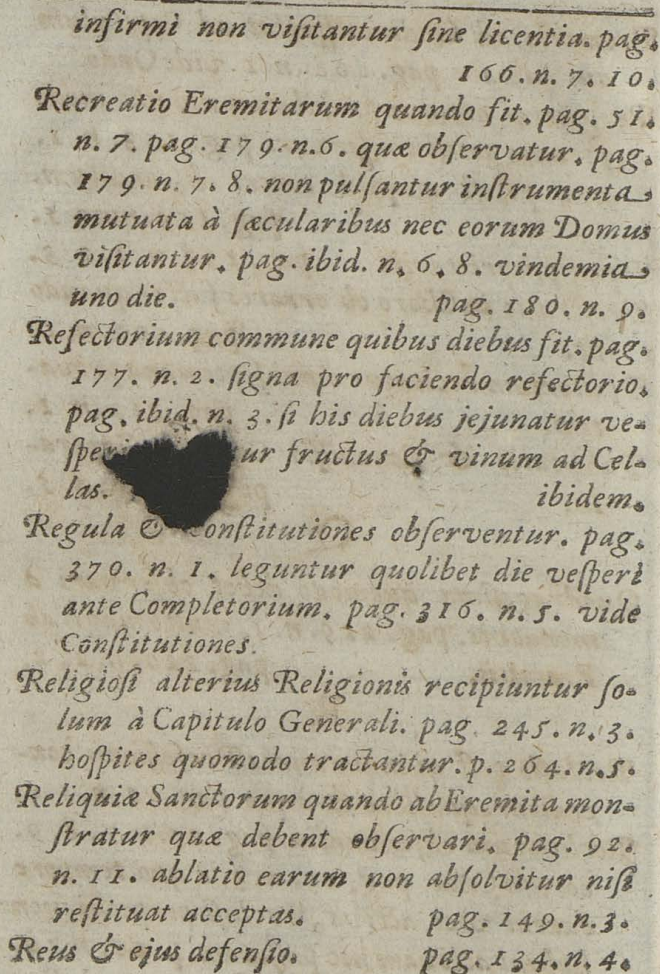 infirmi non viſitantur ſine licentia. pag.
166. n. 7. 10.
Recreatio Eremitarum quando fit. pag. 51.
n. 7. pag. 179. n. 6. quæ obſervatur. pag.
179. n. 7. 8. non pulſantur inſtrumenta
mutuata à ſæcularibus nec eorum Domus
viſitantur. pag. ibid. n. 6. 8. vindemia
uno die. pag. 180. n. 9.
Refectorium commune quibus diebus fit. pag.
177. n. 2. ſigna pro faciendo refectorio.
pag. ibid. n. 3. ſi his diebus jejunatur ve-
ur fructus & vinum ad Cel-
las. ibidem.
Regula & Conſtitutiones obſerventur. pag.
370. n. 1. leguntur quolibet die veſperi
ante Completorium. pag. 316. n. 5. vide
Conſtitutiones.
Religioſi alterius Religionis recipiuntur ſo-
lum à Capitulo Generali. pag. 245. n. 3.
hoſpites quomodo tractantur. p. 264. n. 5.
Reliquiæ Sanctorum quando ab Eremita mon-
ſtratur quæ debent obſervari. pag. 92.
n. 11. ablatio earum non abſolvitur niſi
reſtituat acceptas. pag. 149. n. 3.
Reus & ejus defenſio. pag. 134. n. 4.